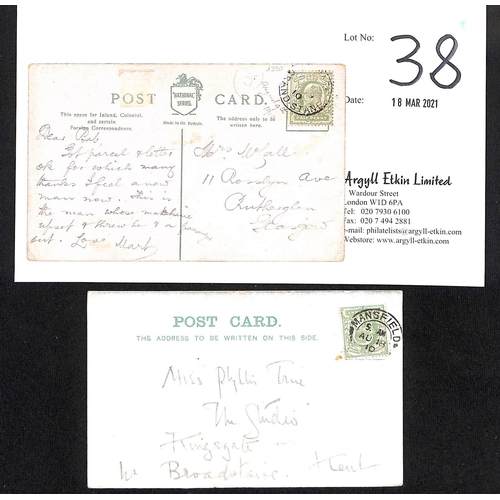 Lot No:
38
Date:
18 MAR 2021
Argyll Etkin Limited
Wardour Street
London W1D 6PA
Tel: 020 7930 6100
Fax: 020 7 494 2881
e-mail: philatelists@argyll-etkin.com
Webstore: www.argyll-etkin.com
POST CARD.
NATIONAL SERIES
Made in Gt. Britain.
This space for Inland, Colonial,
and certain
Foreign Correspondence.
The address only to be
written here.
Dear
Got parcel & letter
ok for which many
thanks I feel a new
man now. This is
the man whose
upset & threw he &
out. Love Mark
Mrs Wall
11 Rosslyn Ave
Rutherglen
Glasgow
POST CARD.
THE ADDRESS TO BE WRITTEN ON THIS SIDE.
MANSFIELD
5 AM
AU
10
Miss Phyllis True
The Studio
Kingsgate
Nr Broadstairs. Kent